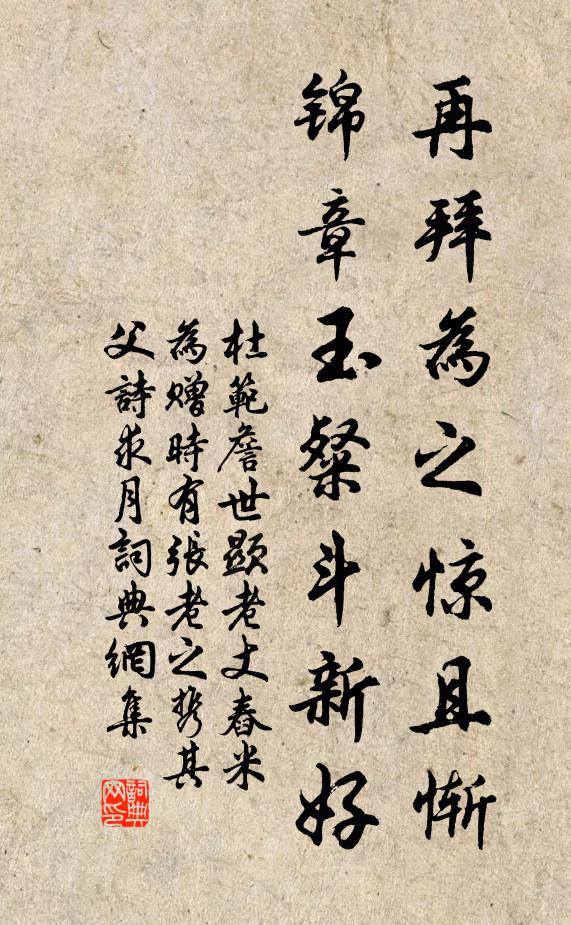 再拜為之惊且慚
锦章玉粲斗新好
杜範詹世顯老丈舂米
為贈時有張老之携其
父詩求月詞典網集
詞典
网印